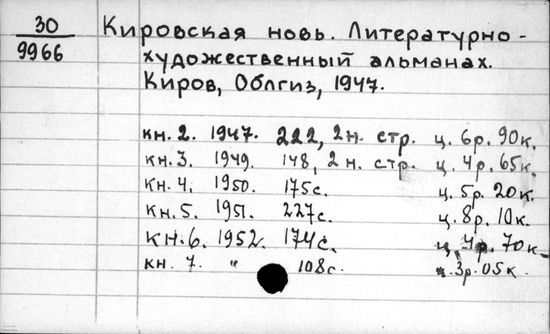 30
9966
Кировская новь. Литературно-
художественный альманах.
Киров, Облгиз, 1947.
кн. 2. 1947. 222, 2 н. стр. ц. 6р. 90к.
кн. 3. 1949. 148, 2 н. стр. ц. 4р. 65к.
кн. 4. 1950. 175с. ц. 5р. 20к.
кн. 5. 1951. 227с. ц. 8р. 10к.
кн. 6. 1952. 174с. ц. 4р. 70к.
кн. 7. " 108с. ц. 3р. 05к.